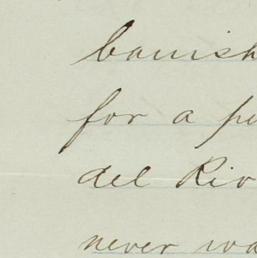 banish
for a pe
del Riv
never wa